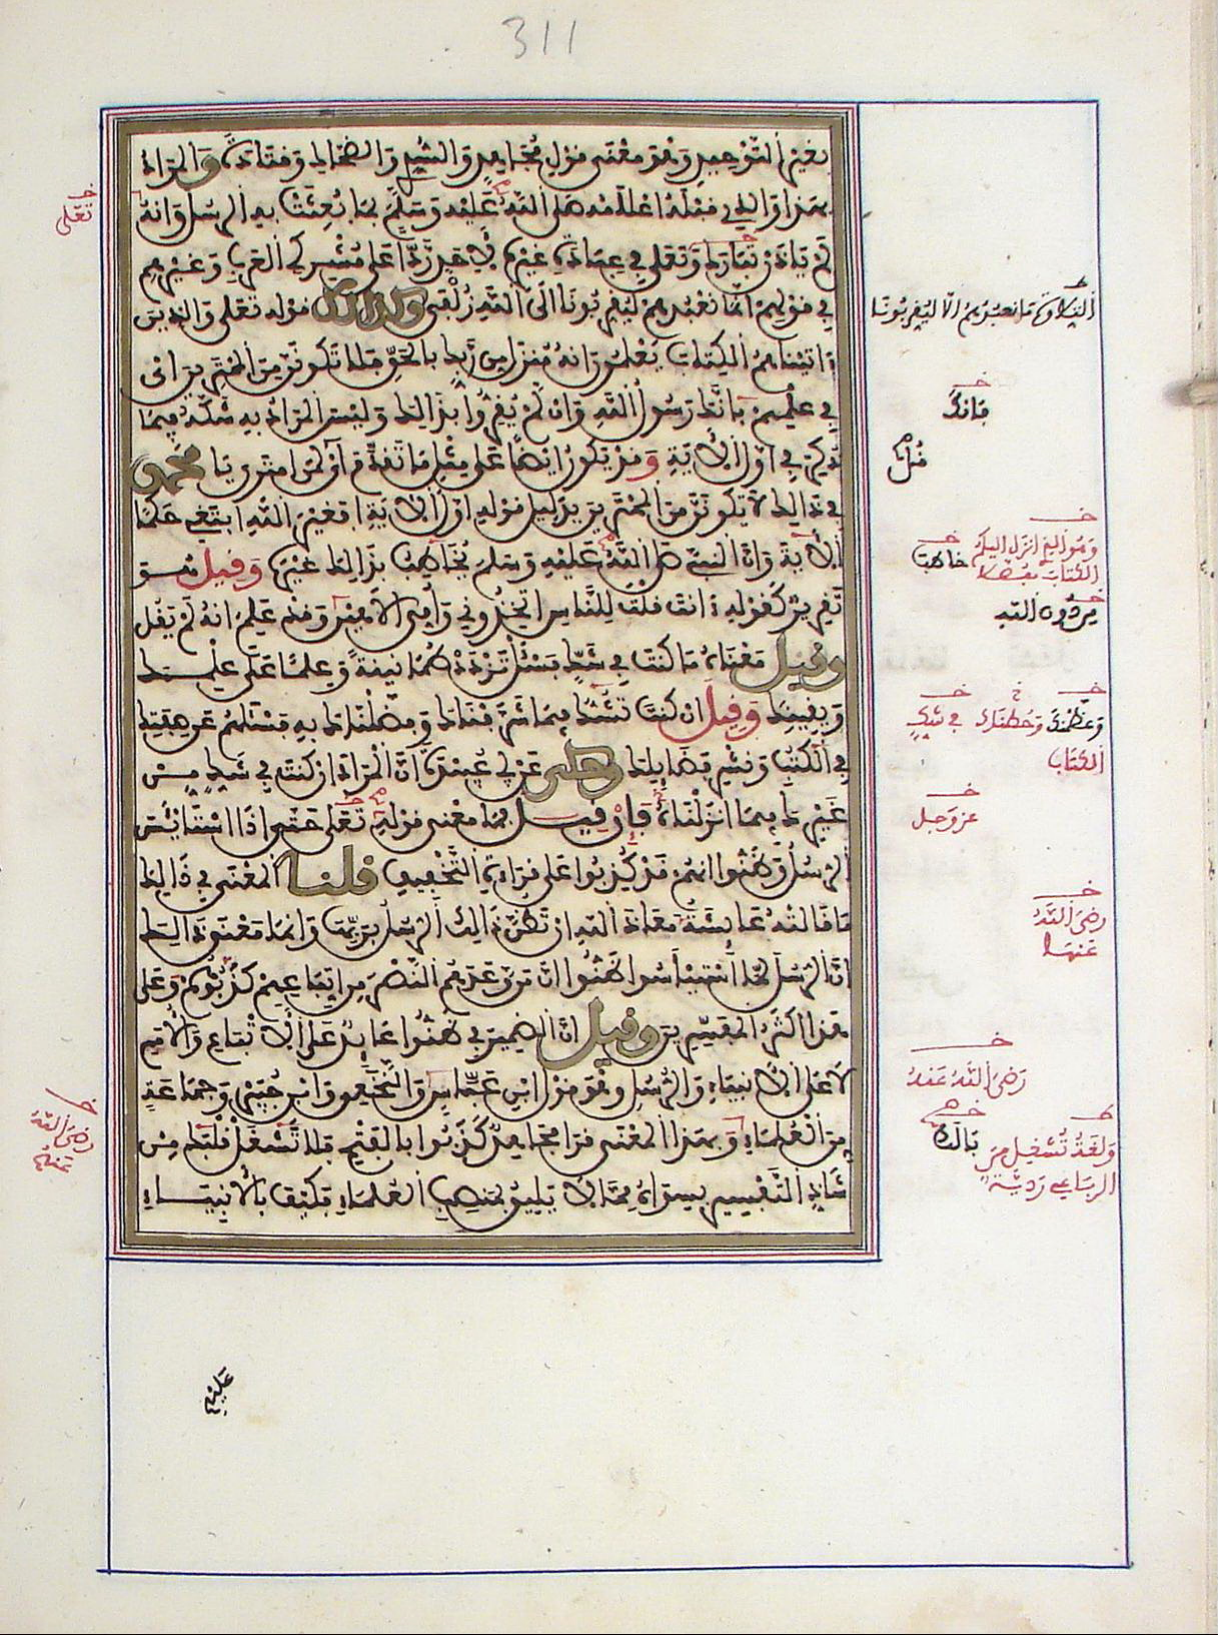 311
بغير التوحيد وهو معنى قول مجاهد والسدي والضحاك وقتادة والمراد
بهذا والذي قبله اعلامه صلى الله عليه وسلم بما بعثت به الرسل وانه
لم ياذن تبارك وتعلى في عبادة غيره لأحد ردا على مشركي العرب وغيرهم
في قولهم انما نعبدهم ليقربونا الى الله زلفى وكذلك قوله تعلى والذين
ءاتيناهم الكتاب يعلمون انه منزل من ربك بالحق فلا تكونن من الممترين اي
في علمهم بانك رسول الله وان لم يقروا بذالك وليس المراد به شكه فيما
ذكر في اول الأية وقد يكون ايضا على مثل ما تقدم اي قل لمن امترى يا محمد
في ذالك لا تكونن من الممترين بدليل قوله اول الأية افغير الله ابتغي حكما
الأية وان النبي صلى الله عليه وسلم يخاطب بذالك غيره وقيل هو
تقرير كقوله ءانت قلت للناس اتخذوني وامي الاهين وقد علم انه لم يقل
وقيل معناه ما كنت في شك فسئل تزدد طمانينة وعلما على علمك
ويقينك وقيل ان كنت تشك فيما شرفناك وفضلناك به فسئلهم عن صفتك
في الكتب ونشر فضايلك وحكي عن ابي عبيدة ان المراد ان كنت في شك من
غيرك فيما انزلناه فإن قيل فما معنى قوله تعلى حتى اذا استايئس
الرسل وظنوا انهم قد كذبوا على قراءة التخفيف قلنا المعنى في ذالك
ما قالته عايشة معاذ الله ان تظن ذالك الرسل بربها وانما معنى ذالك
ان الرسل لما استيئسوا ظنوا ان من وعدهم النصر من اتباعهم كذبوهم وعلى
هذا اكثر المفسرين وقيل ان الضمير في ظنوا عايد على الأتباع والأمم
لا على الأنبياء والرسل وهو قول ابن عباس والنخعي وابن جبير وجماعة
من العلماء وبهذا المعنى قرا مجاهد كذبوا بالفتح فلا تشغل قلبك من
شاذ التفسير بسواه مما لا يليق بمنصب العلماء فكيف بالأنبياء
عليهم
تعلى
رضي الله عنهم
التلاوة ما نعبدهم الا ليقربونا
فانك
قل
وهو الذي انزل اليكم
الكتاب مفصلا
خاطب
من دون الله
وعظمنك
وعظمناك
في شك
الكتاب
عز وجل
رضي الله
عنها
رضي الله عنه
بالك
ولغة تشغل من
الرباعي ردية